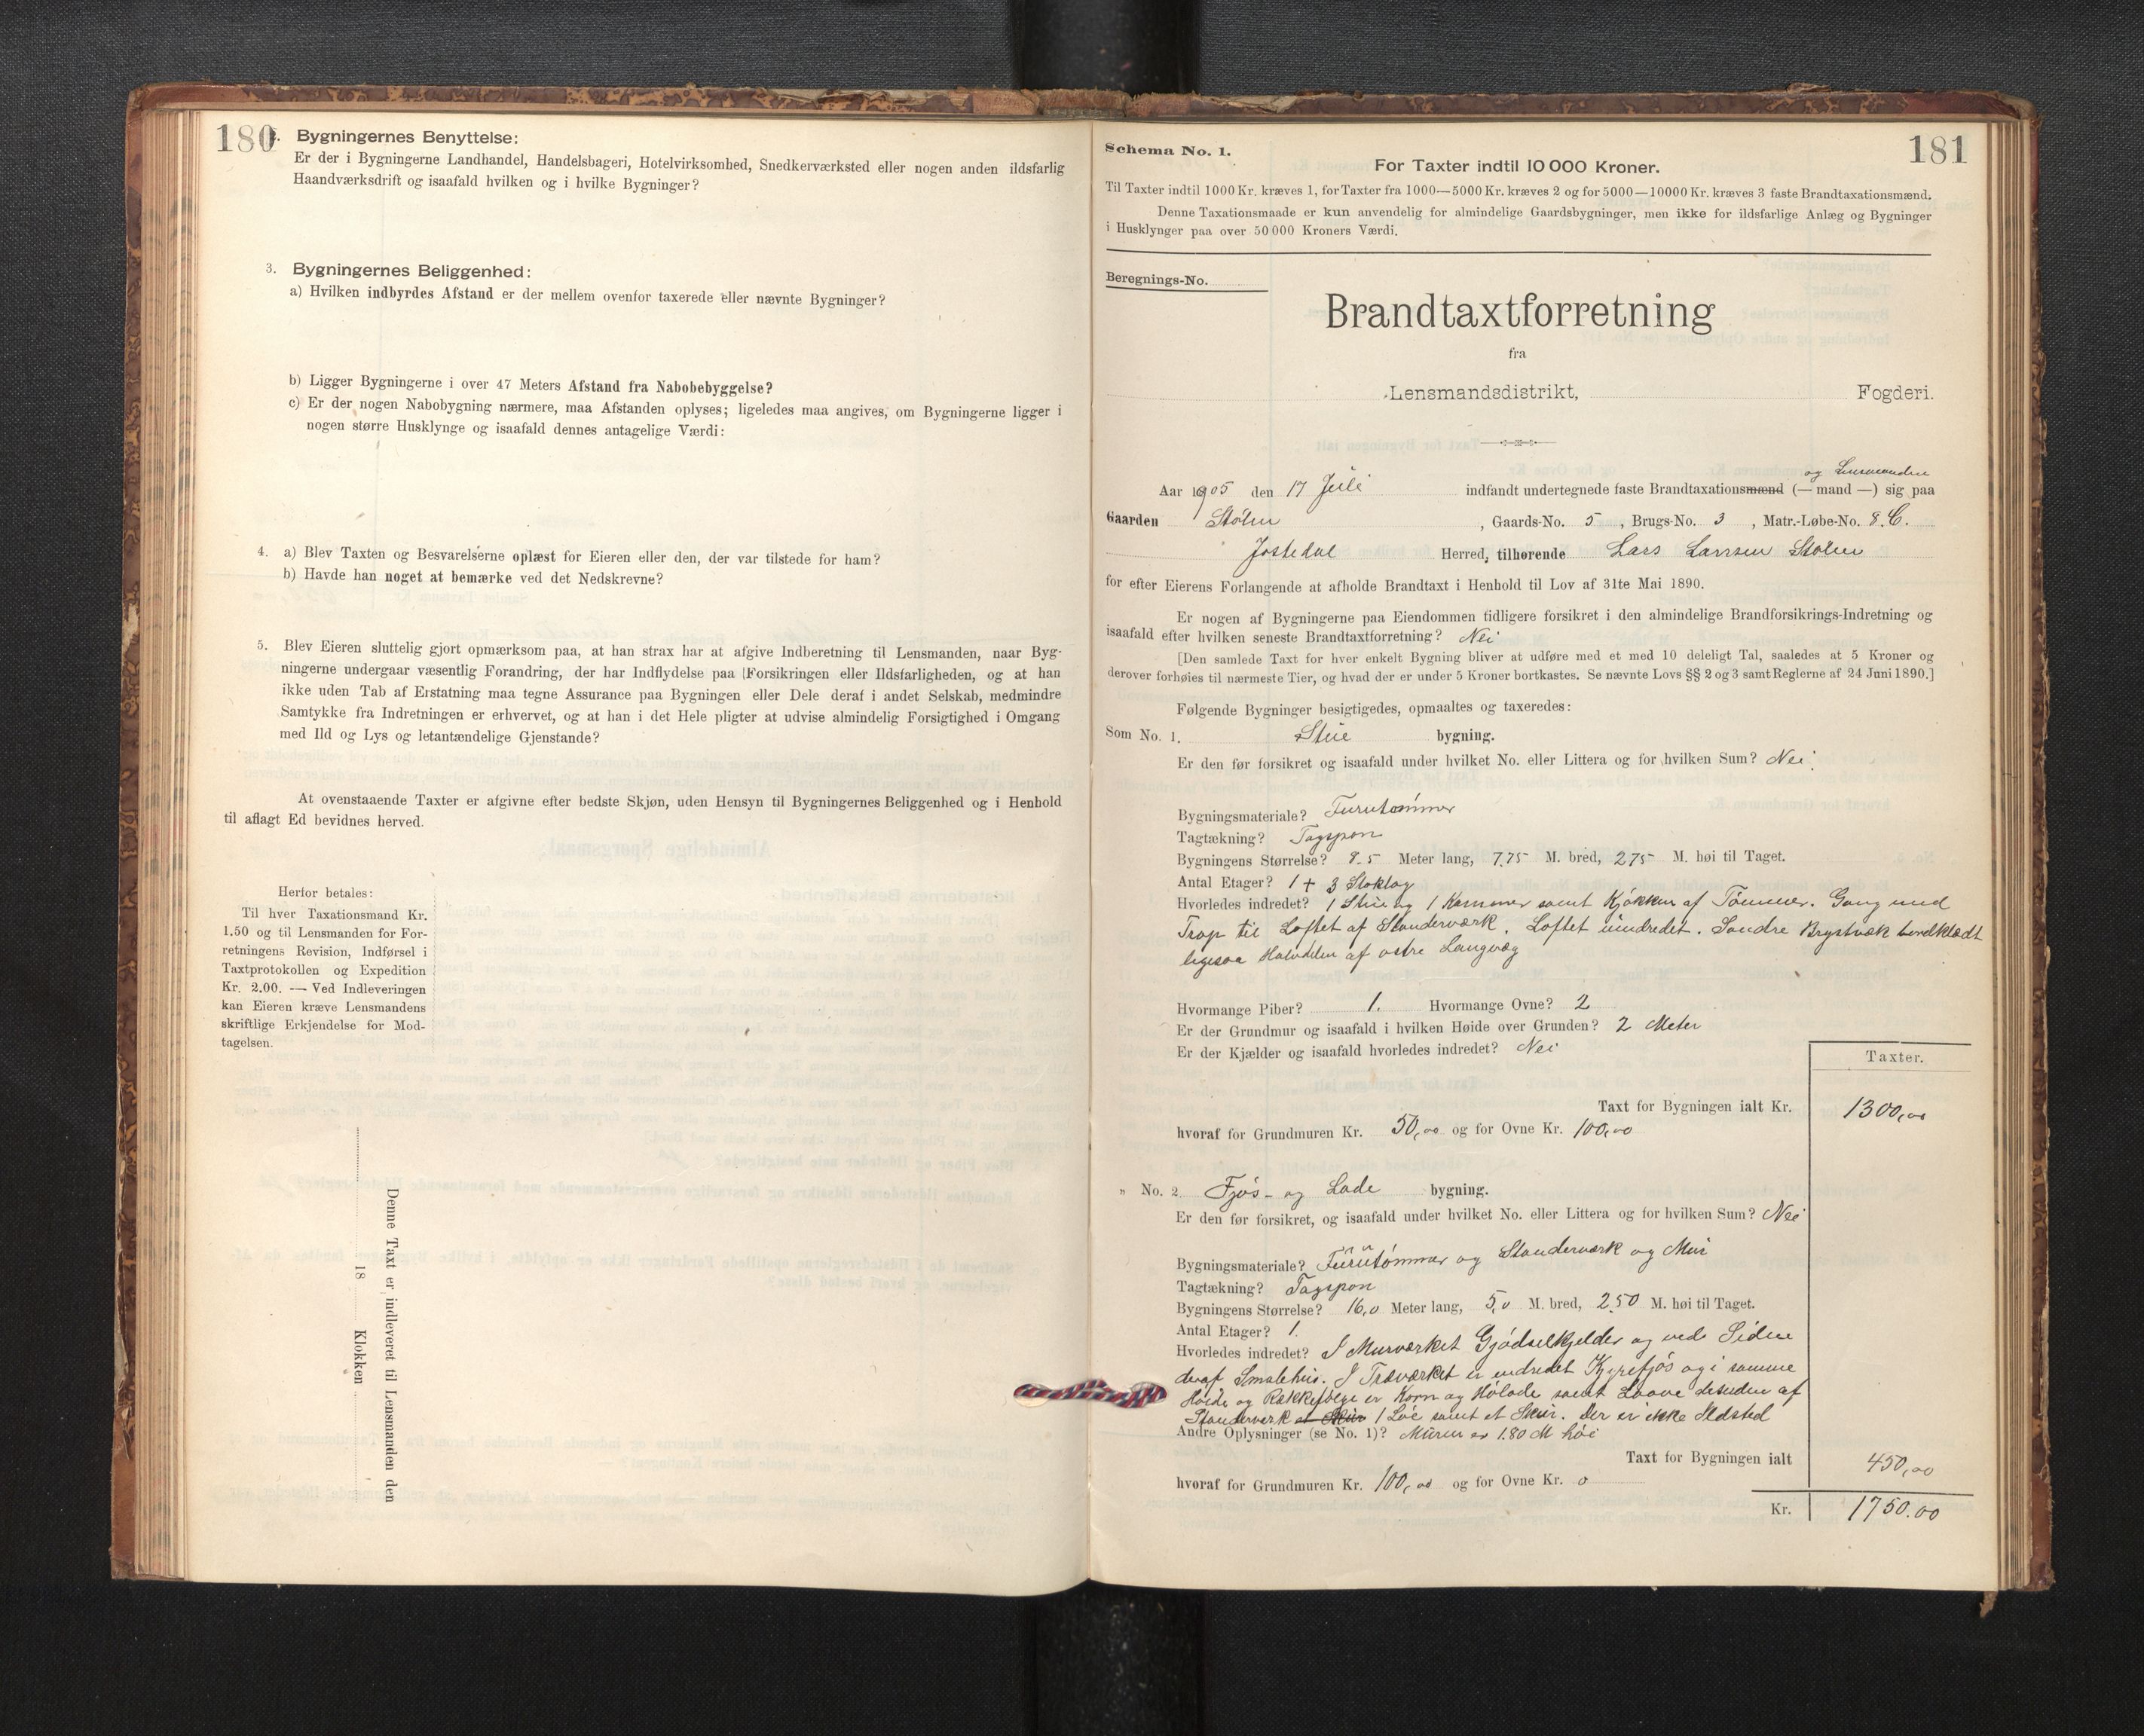 180
2. Bygningernes Benyttelse:
Er der i Bygningerne Landhandel, Handelsbageri, Hotelvirksomhed, Snedkerværksted eller nogen anden ildsfarlig
Haandværksdrift og isaafald hvilken og i hvilke Bygninger?
3. Bygningernes Beliggenhed:
a) Hvilken indbyrdes Afstand er der mellem ovenfor taxerede eller nævnte Bygninger?
b) Ligger Bygningerne i over 47 Meters Afstand fra Nabobebyggelse?
c) Er der nogen Nabobygning nærmere, maa Afstanden oplyses; ligeledes maa angives, om Bygningerne ligger i
nogen større Husklynge og isaafald dennes antagelige Værdi:
4. a) Blev Taxten og Besvarelserne oplæst for Eieren eller den, der var tilstede for ham?
b) Havde han noget at bemærke ved det Nedskrevne?
5. Blev Eieren sluttelig gjort opmærksom paa, at han strax har at afgive Indberetning til Lensmanden, naar Byg-
ningerne undergaar væsentlig Forandring, der har Indflydelse paa Forsikringen eller Ildsfarligheden, og at han
ikke uden Tab af Erstatning maa tegne Assurance paa Bygningen eller Dele deraf i andet Selskab, medmindre
Samtykke fra Indretningen er erhvervet, og at han i det Hele pligter at udvise almindelig Forsigtighed i Omgang
med Ild og Lys og letantændelige Gjenstande?
At ovenstaaende Taxter er afgivne efter bedste Skjøn, uden Hensyn til Bygningernes Beliggenhed og i Henhold
til aflagt Ed bevidnes herved.
Herfor betales:
Til hver Taxationsmand Kr.
1.50 og til Lensmanden for For-
retningens Revision, Indførsel i
Taxtprotokollen og Expedition
Kr. 2.00. — Ved Indleveringen
kan Eieren kræve Lensmandens
skriftlige Erkjendelse for Mod-
tagelsen.
Denne Taxt er indleveret til Lensmanden den
18 Klokken
181
Schema No. 1.
For Taxter indtil 10 000 Kroner.
Til Taxter indtil 1000 Kr. kræves 1, for Taxter fra 1000—5000 Kr. kræves 2 og for 5000—10000 Kr. kræves 3 faste Brandtaxationsmænd.
Denne Taxationsmaade er kun anvendelig for almindelige Gaardsbygninger, men ikke for ildsfarlige Anlæg og Bygninger
i Husklynger paa over 50 000 Kroners Værdi.
Beregnings-No.
Brandtaxtforretning
fra
Lensmandsdistrikt, Fogderi.
og Lensmanden
Aar 1905 den 17 Juli indfandt undertegnede faste Brandtaxationsmænd (— mand —) sig paa
Gaarden Stølen, Gaards-No. 5, Brugs-No. 3, Matr.-Løbe-No. 8.C.
Jostedal Herred, tilhørende Lars Larssen Stølen
for efter Eierens Forlangende at afholde Brandtaxt i Henhold til Lov af 31te Mai 1890.
Er nogen af Bygningerne paa Eiendommen tidligere forsikret i den almindelige Brandforsikrings-Indretning og
isaafald efter hvilken seneste Brandtaxtforretning? Nei
[Den samlede Taxt for hver enkelt Bygning bliver at udføre med et med 10 deleligt Tal, saaledes at 5 Kroner og
derover forhøies til nærmeste Tier, og hvad der er under 5 Kroner bortkastes. Se nævnte Lovs §§ 2 og 3 samt Reglerne af 24 Juni 1890.]
Følgende Bygninger besigtigedes, opmaaltes og taxeredes:
Som No. 1. Stue bygning.
Er den før forsikret og isaafald under hvilket No. eller Littera og for hvilken Sum? Nei
Bygningsmateriale? Furutømmer
Tagtækning? Tagspon
Bygningens Størrelse? 8.5 Meter lang, 7.75 M. bred, 2.75 M. høi til Taget.
Antal Etager? 1 + 3 Stoklag
Hvorledes indredet? 1 Stue og 1 Kammer samt Kjøkken af Tømmer. Gang med
Trap til Loftet af Standerværk. Loftet uindredet. Søndre Brystvæk bordklædt
ligesaa Halvdelen af østre Langvæg
Hvormange Piber? 1. Hvormange Ovne? 2
Er der Grundmur og isaafald i hvilken Høide over Grunden? 2 Meter
Er der Kjælder og isaafald hvorledes indredet? Nei
Taxter.
Taxt for Bygningen ialt Kr. 1300,00
hvoraf for Grundmuren Kr. 50,00 og for Ovne Kr. 100,00
" No. 2 Fjøs- og Lade bygning.
Er den før forsikret, og isaafald under hvilket No. eller Littera og for hvilken Sum? Nei
Bygningsmateriale? Furutømmer og Standerværk og Mur
Tagtækning? Tagspon
Bygningens Størrelse? 16,0 Meter lang, 5,0 M. bred, 2.50 M. høi til Taget.
Antal Etager? 1.
Hvorledes indredet? I Murværket Gjødselkjelder og ved Siden
deraf Smalehus. I Træværket er indredet Kyrefjøs og i samme
Høide og Rækkefølge er Korn og Hølade samt Laave desuden af
Standerværk et Skur 1 Løe samt et Skur. Der er ikke Ildsted
Andre Oplysninger (se No. 1)? Muren er 1.80 M høi
Taxt for Bygningen ialt 450,00
hvoraf for Grundmuren Kr. 100,00 og for Ovne Kr. 0
Kr. 1750.00